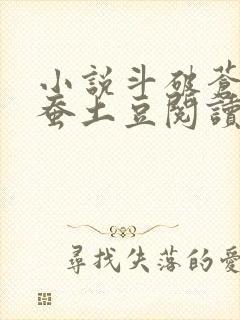 小說斗破蒼
蚕土豆閱讀
尋找失落的愛